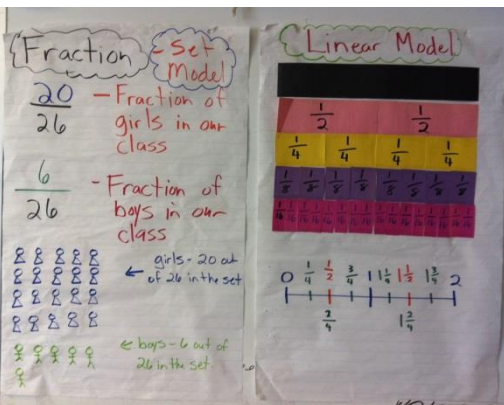 Fraction - Set
Model
20/26 - Fraction of
girls in our
class
6/26 - Fraction of
boys in our
class
← girls - 20 out
of 26 in the set
← boys - 6 out of
26 in the set
Linear Model
1/2 1/2
1/4 1/4 1/4 1/4
1/8 1/8 1/8 1/8 1/8 1/8 1/8 1/8
1/16 1/16 1/16 1/16 1/16 1/16 1/16 1/16 1/16 1/16 1/16 1/16 1/16 1/16 1/16 1/16
0 1/4 1/2 3/4 1 1 1/4 1 1/2 1 3/4 2
2/4 1 2/4